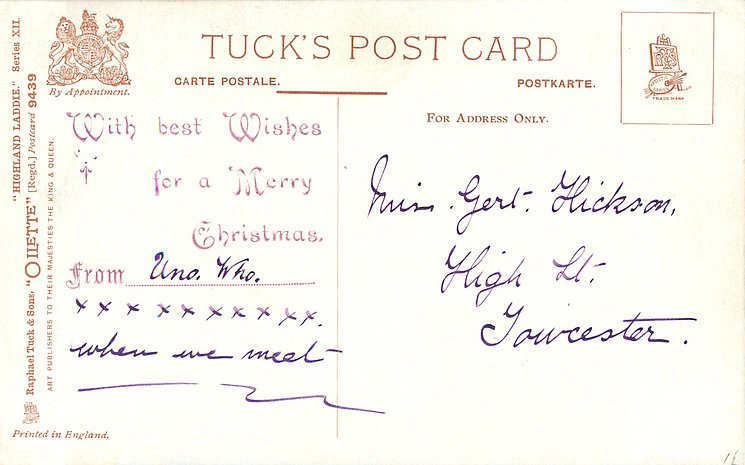 TUCK'S POST CARD
CARTE POSTALE.
POSTKARTE.
By Appointment.
TRADE MARK
FOR ADDRESS ONLY.
With best Wishes
for a Merry
Christmas.
From Uno. Who.
x x x x x x x x x x.
when we meet
Miss. Gert. Hickson,
High St.
Towcester.
"HIGHLAND LADDIE." Series XII.
Raphael Tuck & Sons, "OILETTE" [Regd.] Postcard 9439
ART PUBLISHERS TO THEIR MAJESTIES THE KING & QUEEN.
Printed in England.